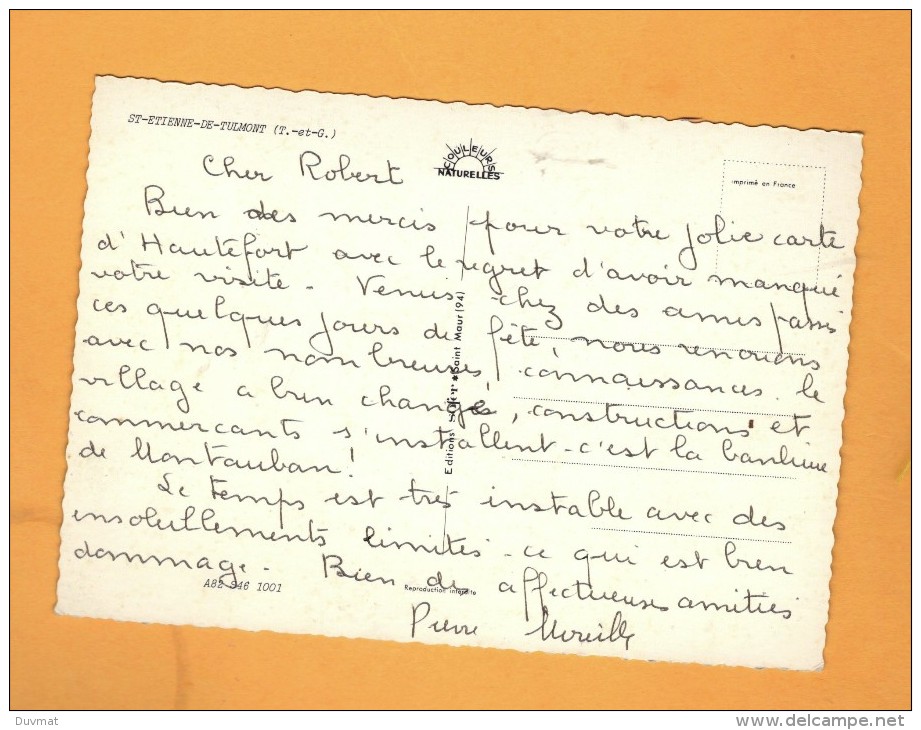 ST-ETIENNE-DE-TULMONT (T.-et-G.)
COULEURS
NATURELLES
imprimé en France
Cher Robert
Bien des mercis pour votre jolie carte
d'Hautefort avec le regret d'avoir manqué
votre visite - Venus chez des amis passer
ces quelques jours de fête, nous renouons
avec nos nombreuses connaissances. le
village a bien changé, constructions et
commercants s'installent - c'est la banlieue
de Montauban!
Le temps est très instable avec des
ensoleillements limités - ce qui est bien
dommage. Bien de affectueuses amitiés
Pierre Mireille
Editions sofer * Saint Maur (94)
A82 946 1001
Reproduction interdite
Duvmat
www.delcampe.net